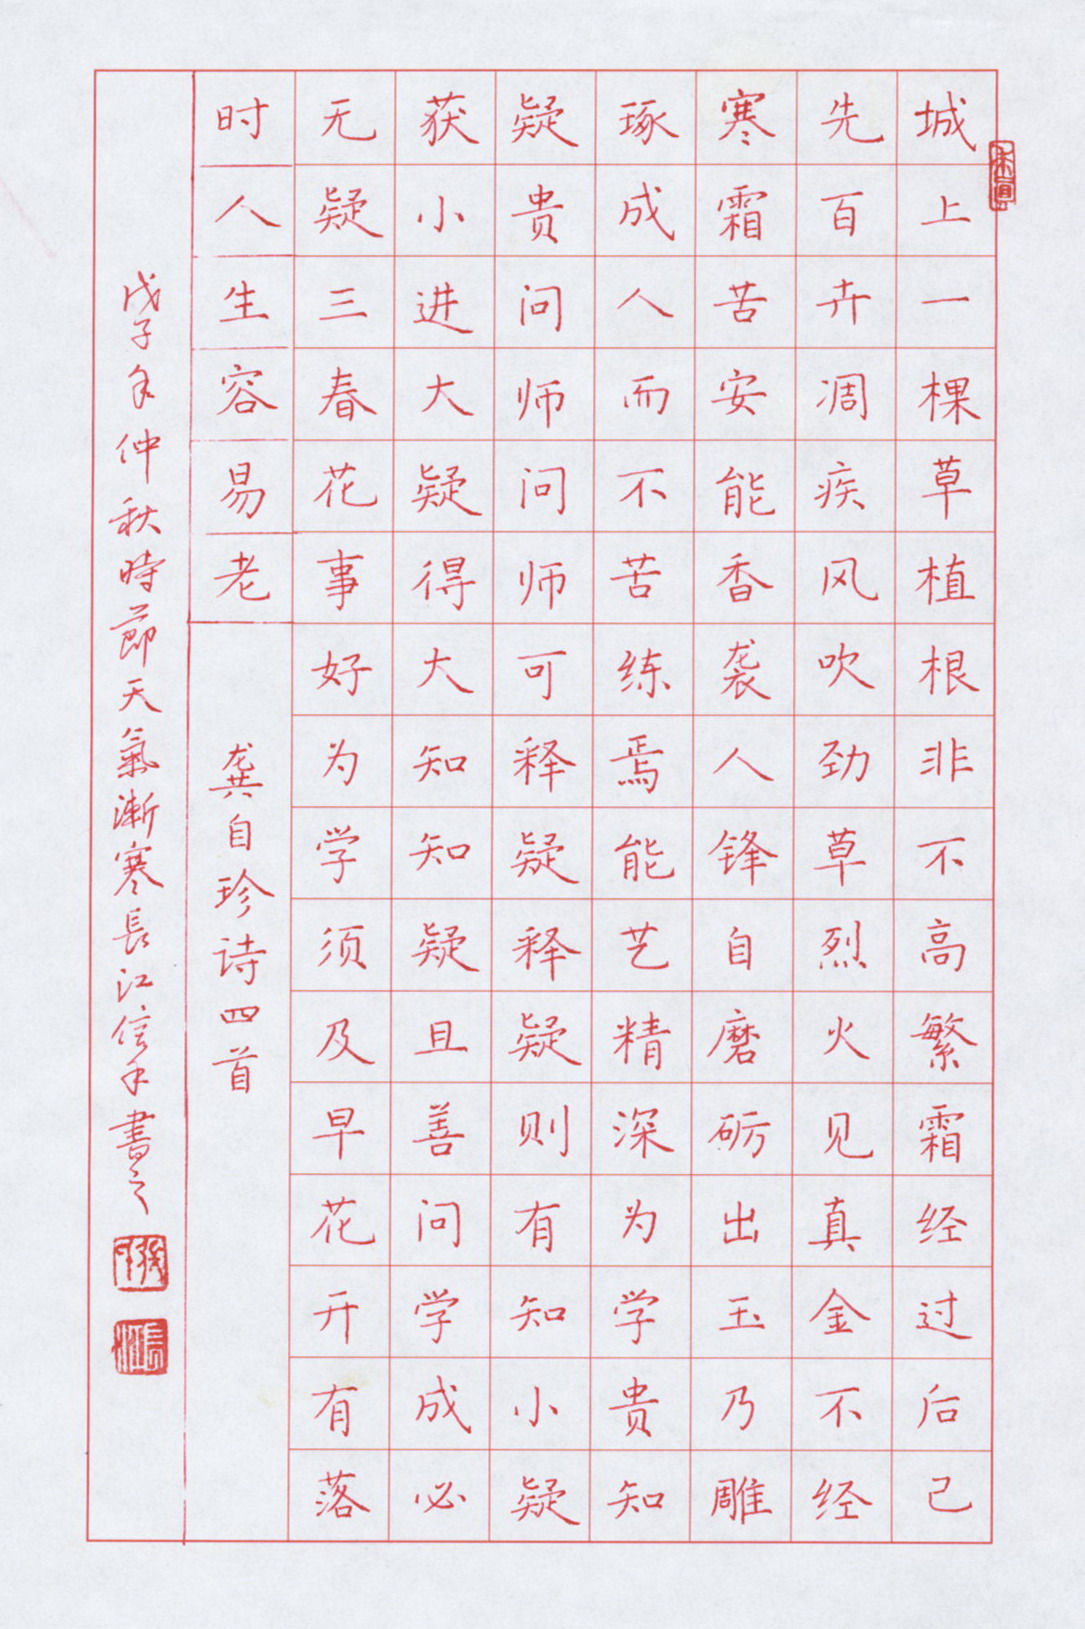 城上一棵草植根非不高繁霜经过后己
先百卉凋疾风吹劲草烈火见真金不经
寒霜苦安能香袭人锋自磨砺出玉乃雕
琢成人而不苦练焉能艺精深为学贵知
疑贵问师问师可释疑释疑则有知小疑
获小进大疑得大知知疑且善问学成必
无疑三春花事好为学须及早花开有落
时人生容易老
龚自珍诗四首
戊子年仲秋時節天氣漸寒長江信手書之